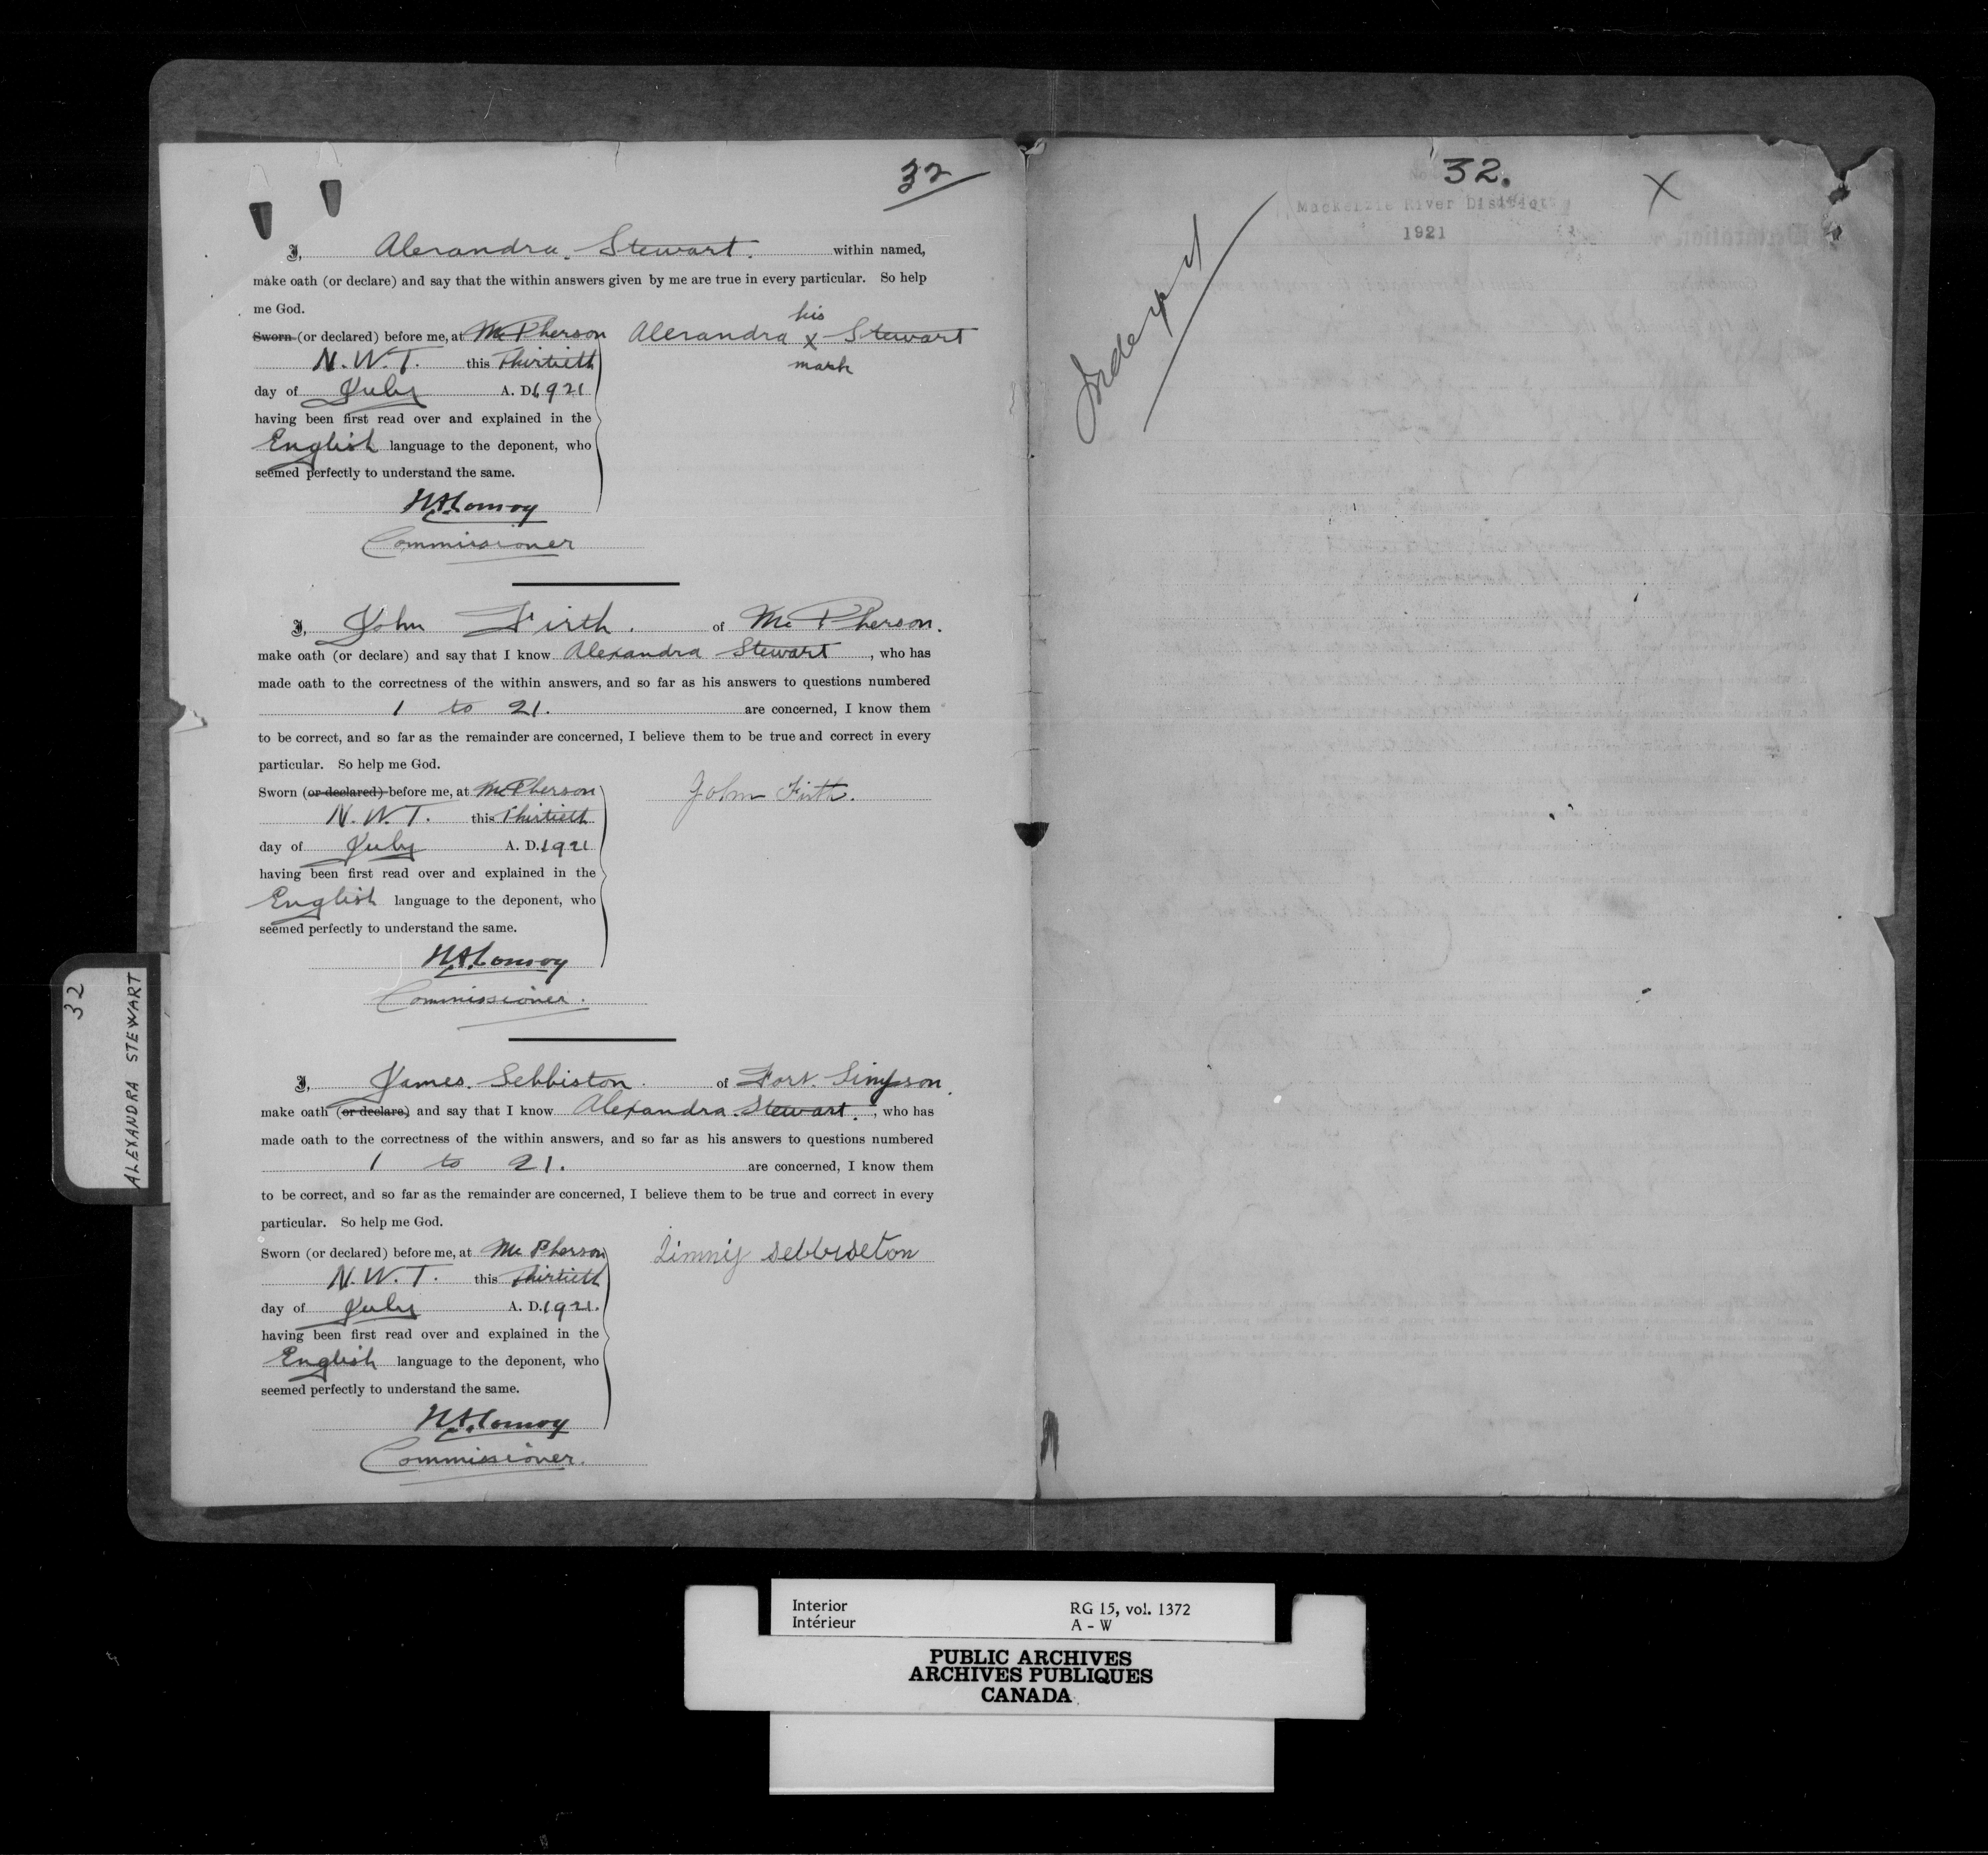 32
I, Alexandra. Stewart. within named,
make oath (or declare) and say that the within answers given by me are true in every particular. So help
me God.
Sworn (or declared) before me, at McPherson
N.W.T. this Thirtieth
day of July A. D. 1921
having been first read over and explained in the
English language to the deponent, who
seemed perfectly to understand the same.
his
Alexandra x Stewart
mark
H A Conroy
Commissioner
I, John Firth. of Mc Pherson.
make oath (or declare) and say that I know Alexandra Stewart, who has
made oath to the correctness of the within answers, and so far as his answers to questions numbered
1 to 21. are concerned, I know them
to be correct, and so far as the remainder are concerned, I believe them to be true and correct in every
particular. So help me God.
Sworn (or declared) before me, at McPherson
N.W.T. this Thirtieth
day of July A. D. 1921
having been first read over and explained in the
English language to the deponent, who
seemed perfectly to understand the same.
John Firth.
H A Conroy
Commissioner.
I, James. Sebbiston. of Fort. Simpson.
make oath (or declare) and say that I know Alexandra. Stewart., who has
made oath to the correctness of the within answers, and so far as his answers to questions numbered
1 to 21. are concerned, I know them
to be correct, and so far as the remainder are concerned, I believe them to be true and correct in every
particular. So help me God.
Sworn (or declared) before me, at Mc Pherson
N.W.T. this Thirtieth
day of July A. D. 1921.
having been first read over and explained in the
English language to the deponent, who
seemed perfectly to understand the same.
Jimmy sebbiseton
H A Conroy
Commissioner.
32
ALEXANDRA STEWART
32.
X
Mackenzie River District
1921
Interior
Intérieur
RG 15, vol. 1372
A - W
PUBLIC ARCHIVES
ARCHIVES PUBLIQUES
CANADA